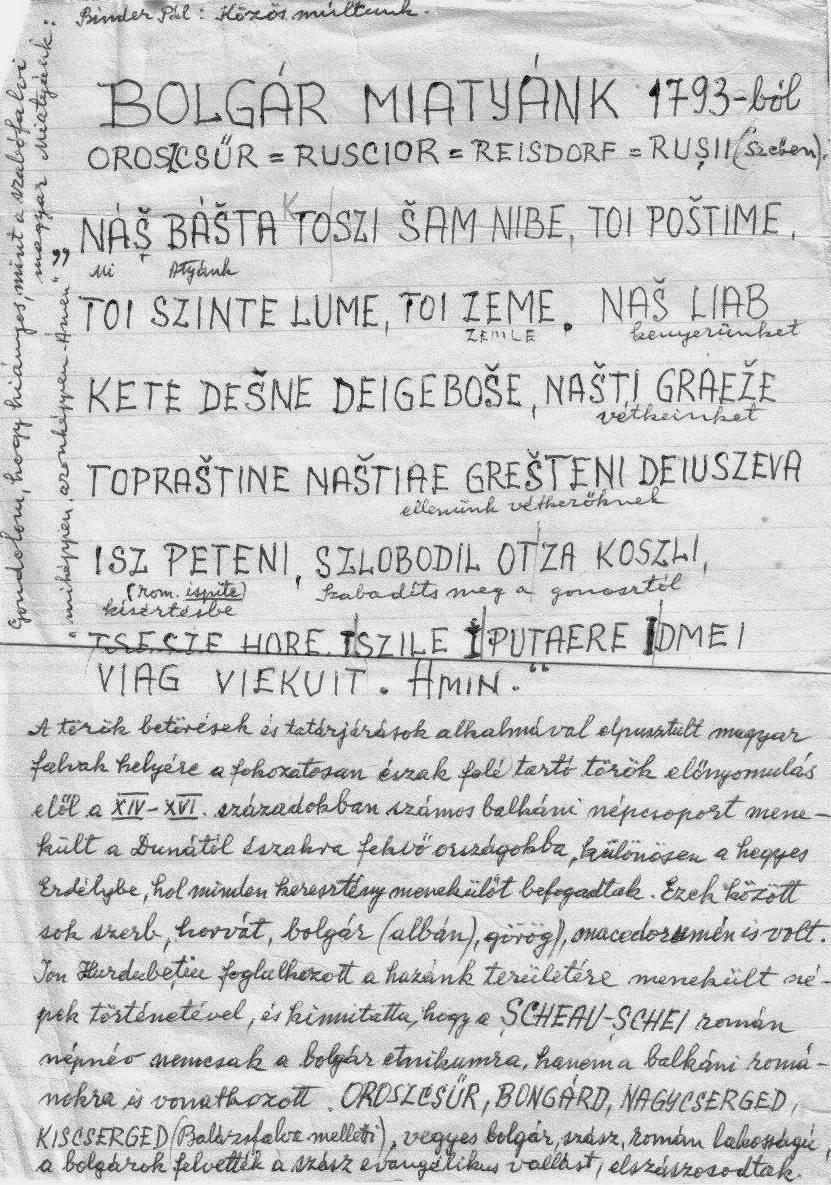 Binder Pál: Közös múltunk.
BOLGÁR MIATYÁNK 1793-ból
OROSZCSŰR = RUSCIOR = REISDORF = RUȘII (Szeben).
„NÁŠ BÁŠTA K TOSZI ŠAM NIBE, TOI POŠTIME,
Mi Atyánk
TOI SZINTE LUME, TOI ZEME. NAŠ LIAB
ZEMLE kenyerünket
KETE DEŠNE DEIGEBOŠE, NAŠTI GRAEŽE
vétkeinket
TOPRAŠTINE NAŠTIAE GREŠTENI DEIUSZEVA
ellenünk vétkezőknek
ISZ PETENI, SZLOBODIL OTZA KOSZLI,
(rom. ispite) Szabadíts meg a gonosztól
kísértésbe
HORE. ISZILE I PUTAERE IDMEI
VIAG VIEKUIT. AMIN."
A török betörések és tatárjárások alkalmával elpusztult magyar
falvak helyére a fokozatosan észak felé tartó török előnyomulás
elől a XIV-XVI. századokban számos balkáni népcsoport mene-
kült a Dunától északra fekvő országokba, különösen a hegyes
Erdélybe, hol minden keresztény menekülőt befogadtak. Ezek között
sok szerb, horvát, bolgár (albán), görög, macedorumén is volt.
Ion foglalkozott a hazánk területére menekült né-
pek történetével, és kimutatta, hogy a ȘCHEAU-ȘCHEI román
népnév nemcsak a bolgár etnikumra, hanem a balkáni romá-
nokra is vonatkozott. OROSZCSŰR, BONGÁRD, NAGYCSERGED,
KISCSERGED (Balázsfalva melletti), vegyes bolgár, szász, román lakosságú,
a bolgárok felvették a szász evangélikus vallást, elszászosodtak.
Gondolom, hogy hiányos, mint a szabófalvi
magyar Miatyánk:
"miképpen, azonképpen - Amen"